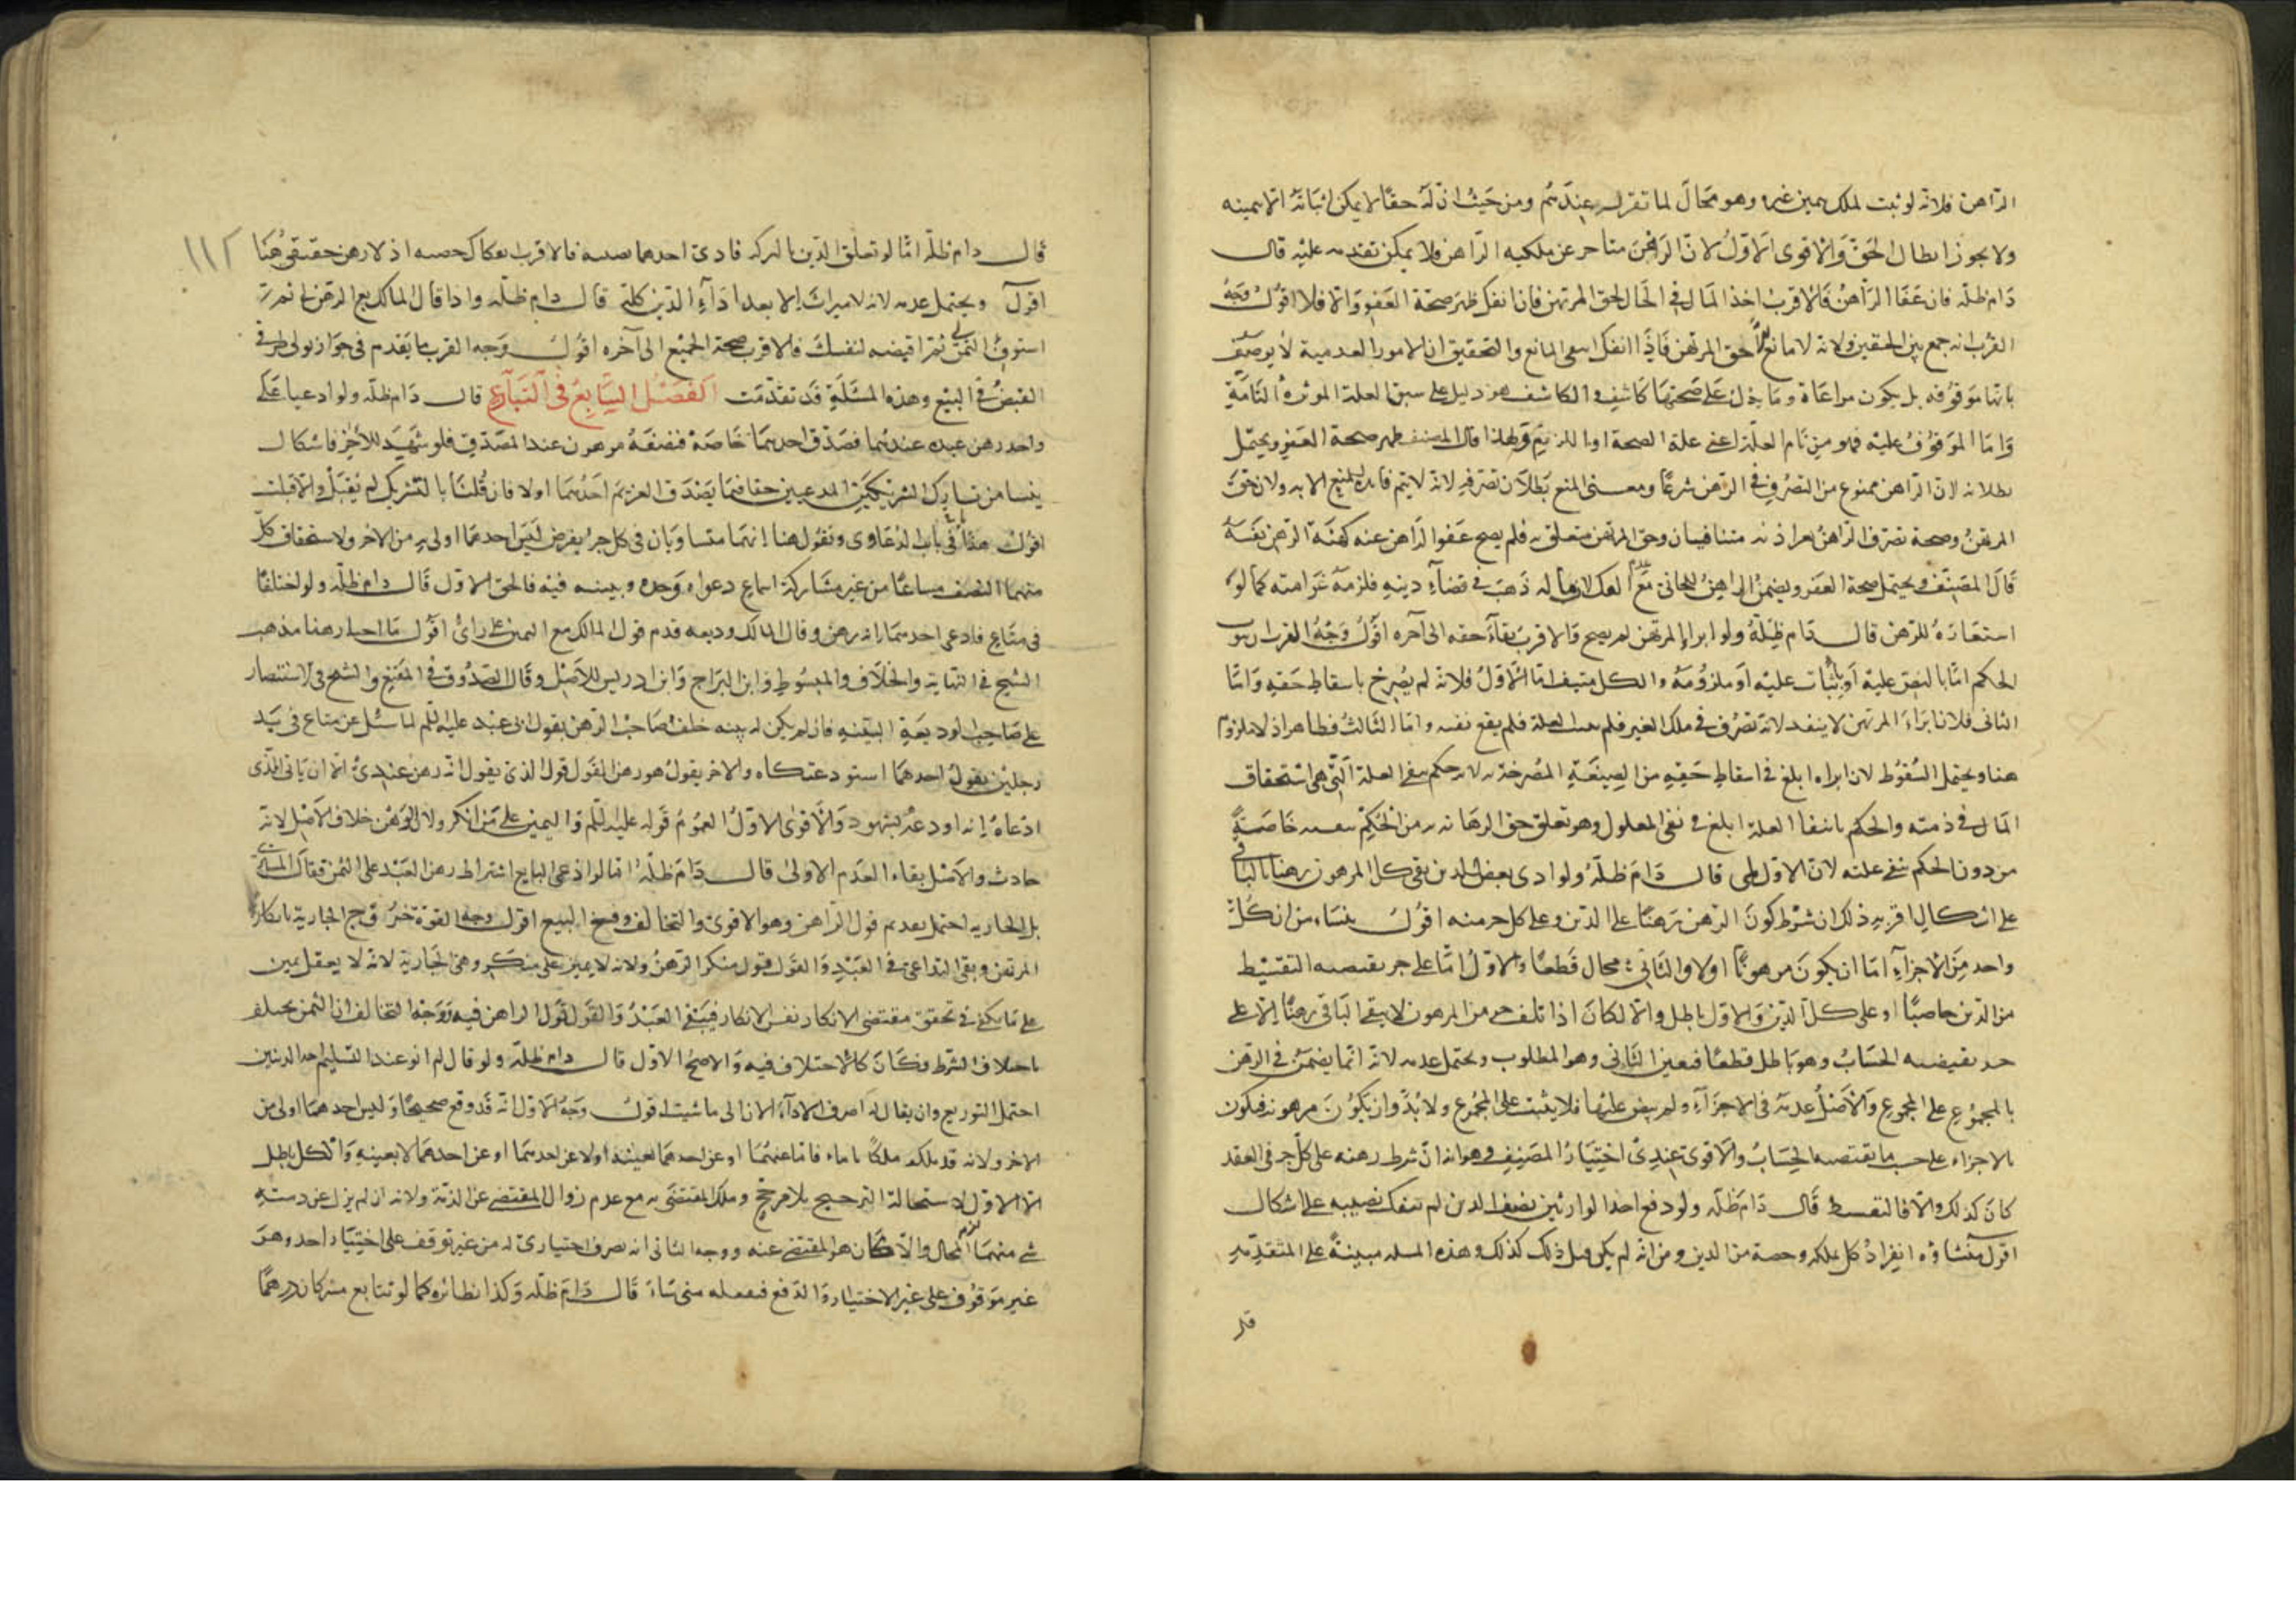 الراهن فلانه لو ثبت لملك يمين غيره وهو محال لما تقرر عندهم ومن حيث ان له حقا لا يمكن اثباته الا بيمينه
ولا يجوز ابطال الحق والاقوى الاول لان الرهن متاخر عن ملكيه الراهن فلا يمكن تقدمه عليه قال
دام ظله فان عفا الراهن فالاقرب اخذ المال في الحال لحق المرتهن فان انفك ظهر صحة العفو والا فلا اقول وجه
القرب انه جمع بين الحقين ولانه لا مانع الا حق المرتهن فاذا انفك انتفى المانع والتحقيق ان الامور العدمية لا يوصف
بانها موقوفه بل يكون مراعاة وما يدل على صحتها كاشف والكاشف هو دليل على سبق العلة الموثرة التامة
واما الموقوف عليه فهو من تمام العلة اعنى علة الصحة او اللزوم ولهذا قال المصنف ظهر صحة العفو ويحتمل
بطلانه لان الراهن ممنوع من التصرف في الرهن شرعا ومعنى المنع بطلان تصرفه لانه لا يتم فايدة المنع الا به ولان حق
المرتهن وصحة تصرف الراهن بغير اذنه متنافيان وحق المرتهن متعلق به فلم يصح عفو الراهن عنه كهبة الرهن نفسه
قال المصنف ويحتمل صحة العفو ويضمن الراهن للجانى مع الفك لان ماله ذهب في قضاء دينه فلزمه غرامته كما لو
استعاره للرهن قال دام ظله ولو ابرا المرتهن لم يصح والاقرب بقاء حقه الى آخره اقول وجه القرب ان
الحكم اما بالنص عليه او باثبات عليه او ملزومه والكل منتف اما الاول فلانه لم يصرح باسقاط حقه واما
الثانى فلان ابراء المرتهن لا ينفذ لانه تصرف في ملك الغير فلم العلة فلم يقع نفسه واما الثالث فظاهر اذ لا ملزوم
هنا ويحتمل السقوط لان ابراه ابلغ في اسقاط حقه من الصيغة المصرحة به لانه حكم بنفى العلة التى هى استحقاق
المال في ذمته والحكم بانتفا العلة ابلغ في نفى المعلول وهو تعلق حق الرهانة به من الحكم بنفسه خاصة
من دون الحكم بنفى علته لان الاول لمى قال دام ظله ولو ادى بعض الدين بقى كل المرهون رهنا بالباقى
على اشكال اقربه ذلك ان شرط كون الرهن رهنا على الدين وعلى كل جزء منه اقول ينشاء من ان كل
واحد من الاجزاء اما ان يكون مرهونا اولا والثانى محال قطعا والاول اما على جزء يقتضيه التقسيط
من الدين حاصبا او على كل الدين والاول باطل والا لكان اذا تلف جزء من المرهون لا يبقى الباقى رهنا الا على
جزء يقتضيه الحساب وهو باطل قطعا فتعين الثانى وهو المطلوب ويحتمل عدمه لانه انما يضمن في الرهن
بالمجموع على المجموع والاصل عدمه في الاجزاء ولم ينص عليها فلا يثبت على المجموع ولا بد وان يكون مرهونة فيكون
بالاجزاء على حسب ما يقتضيه الحساب والاقوى عندى اختيار المصنف وهو انه ان شرط رهنه على كل جزء في العقد
كان كذلك والا فالتقسيط قال دام ظله ولو دفع احد الوارثين نصف الدين لم ينفك نصيبه على اشكال
اقول منشاؤه انفراد كل بملكه وحصة من الدين ومن انه لم يكن قبل ذلك كذلك وهذه المسله مبينة على المتقدمة
قال
١١٢
قال دام ظله اما لو تعلق الدين بالتركه فادى احدهما نصيبه فالاقرب انفكاك حصته اذ لا رهن حقيقى هنا
اقول ويحتمل عدمه لانه لا ميراث الا بعد اداء الدين كله قال دام ظله واذا قال المالك بع الرهن لى ثم
استوف الثمن لى ثم اقبضه لنفسك فالاقرب صحة الجميع الى آخره اقول وجه القرب ما تقدم في جواز تولى طرفى
القبض في البيع وهذه المسئلة قد تقدمت الفصل السابع في التنازع قال دام ظله ولو ادعيا على
واحد رهن عبده عندهما فصدق احدهما خاصة فنصفه مرهون عند المصدق فلو شهد للآخر فاشكال
ينشا من تشارك الشريكين المدعيين حقا فيما يصدق الغريم احدهما اولا فان قلنا بالتشريك لم نقبل والا قبلت
اقول هذا ياتى في باب الدعاوى ونقول هنا انهما متساويان في كل جزء يفرض ليس احدهما اولى به من الاخر ولاستحقاق كل
منهما النصف مشاعا من غير مشاركة دعواه وحده وبينه فيه فالحق الاول قال دام ظله ولو اختلفا
في متاع فادعى احدهما انه رهن وقال المالك وديعه قدم قول المالك مع اليمين على راى اقول ما اختاره هنا مذهب
الشيخ في النهاية والخلاف والمبسوط وابن البراج وابن ادريس للاصل وقال الصدوق في المقنع والشيخ في الاستبصار
على صاحب الوديعة البينه فان لم يكن له بينه حلف صاحب الرهن بقول ابى عبد الله عليه السلم لما سئل عن متاع في يد
رجلين يقول احدهما استودعتكاه والاخر يقول هو رهن القول قول الذى يقول انه رهن عندى الا ان ياتى الذى
ادعاه انه اودعه بشهود والاقوى الاول لعموم قوله عليه السلم واليمين على من انكر ولان الرهن خلاف الاصل لانه
حادث والاصل بقاء العدم الاولى قال دام ظله اما لو ادعى البايع اشتراط رهن العبد على الثمن فقال المشترى
بل الجاريه احتمل تقديم قول الراهن وهو الاقوى والتحالف وفسخ البيع اقول وجه القوة خروج الجارية بانكار
المرتهن وبقى التداعى في العبد والقول قول منكر الرهن ولانه لا يمين على منكر رهن الجارية لانه لا يعقل يمين
على ما يكفى في تحقق مقتضى الانكار نفس الانكار فيبقى العبد والقول قول الراهن فيه ووجه التحالف ان الثمن يختلف
باختلاف الشرط فكان كالاختلاف فيه والاصح الاول قال دام ظله ولو قال لم انو عند التسليم احد الدينين
احتمل التوزيع وان يقال له اصرف الاداء الان الى ما شيت اقول وجه الاول انه قد وقع صحيحا وليس احدهما اولى من
الاخر ولانه قد ملكه ملكا تاما فاما عنهما او عن احدهما بعينه اولا عن احدهما او عن احدهما لا بعينه والكل باطل
الا الاول لاستحالة الترجيح بلا مرجح وملك المقتضى به مع عدم زوال المقتضى عن الذمة ولانه ان لم يزل عن ذمته
شى منهما لزم المحال والا كان هو المقتضى عنه ووجه الثانى انه تصرف اختيارى له من غير توقف على اختيار احد وهو
غير موقوف على غير الاختيار والدفع فيفعله متى شاء قال دام ظله وكذا نظائره كما لو تبايع مشركان درهما